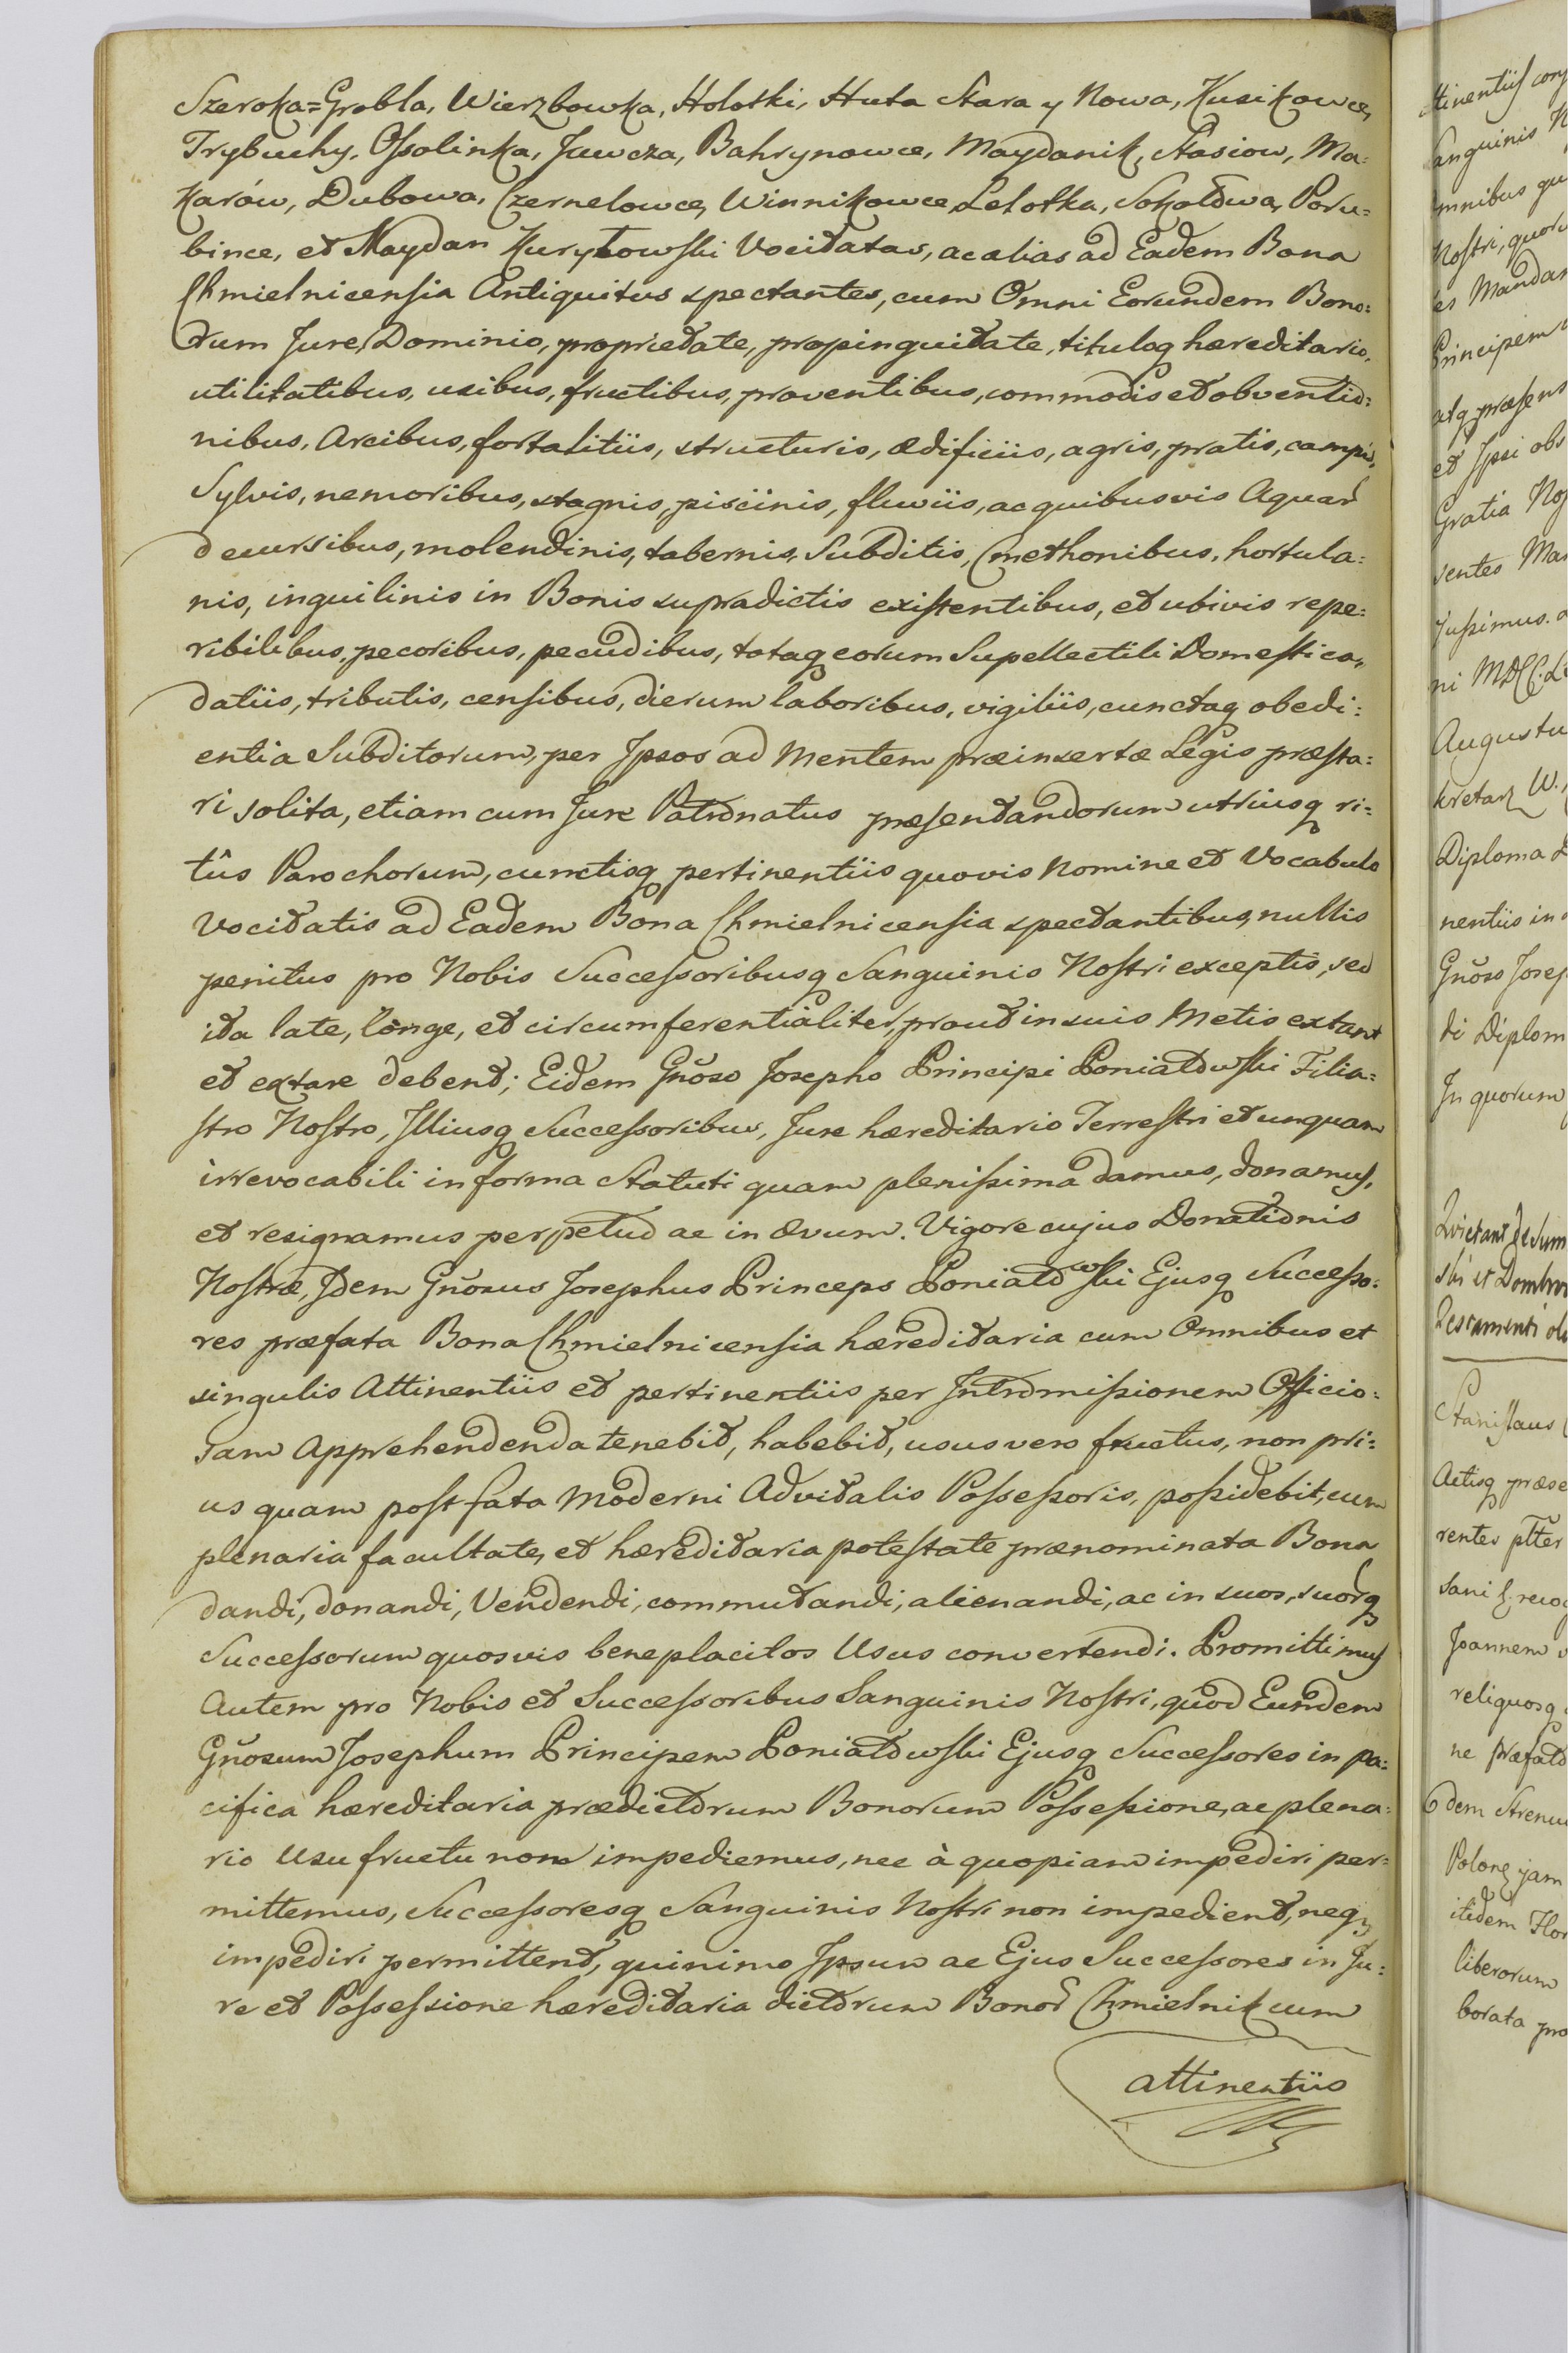 Szeroka=Grobla, Wierzbowka, Holotki, Huta Stara y Nowa, Kusikowce,
Trybuchy, Ossolinka, Jawcza, Bahrynowce, Maydanik, Stasiow, Ma=
karów, Dubowa, Czernelowce, Winnikowce, Letotka, Sokołowa, Poru=
bince, et Maydan Kuryłowski Vocitatas, ac alias ad Eadem Bona
Chmielnicensia Antiquitus spectantes, cum Omni Eorundem Bono=
rum Jure, Dominio, proprietate, propinquitate, tituloq hæreditario,
utilitatibus, usibus, fructibus, proventibus, commodis et obventio=
nibus, Arcibus, fortalitiis, structuris, ædificiis, agris, pratis, campis,
Sylvis, nemoribus, stagnis, pisciinis, fluviis, ac quibusvis Aquar
decursibus, molendinis, tabernis, Subditis, Cmethonibus, hortula=
nis, inquilinis in Bonis supradictis existentibus, et ubivis repe=
ribilibus, pecoribus, pecudibus, totaq eorum Supellectili Domestica,
datiis, tributis, censibus, dierum laboribus, vigiliis, cunctaq obedi=
entia Subditorum, per Ipsos ad Mentem præinsertæ Legis præsta=
ri solita, etiam cum Jure Patronatus præsentandorum utriusq ri=
tûs Parochorum, cunctisq pertinentiis quovis Nomine et Vocabulo
Vocitatis ad Eadem Bona Chmielnicensia spectantibus, nullis
penitus pro Nobis Successoribusq Sanguinis Nostri exceptis, sed
ita late, longe, et circumferentialiter, prout in suis Metis extant
et extare debent; Eidem Gnõso Josepho Principi Poniatowski Filia=
stro Nostro, Illiusq Successoribus, Jure hæreditario Terrestri et unquam
irrevocabili in forma Statuti quam plenissima damus, donamus,
et resignamus perpetuo ac in ævum. Vigore cujus Donationis
Nostræ, Idem Gnõsus Josephus Princeps Poniatowski Ejusq Successo=
res præfata Bona Chmielnicensia hæreditaria cum Omnibus et
singulis Attinentiis et pertinentiis per Intromissionem Officio=
sam Apprehendenda tenebit, habebit, usus vero fructus, non pri=
us quam post fata Moderni Advitalis Possessoris, possidebit, cum
plenaria facultate, et hæreditaria potestate prænominata Bona
dandi, donandi, Vendendi, commutandi, alienandi, ac in suos, suorq
Successorum quosvis beneplacitos Usus convertendi. Promittimus
Autem pro Nobis et Successoribus Sanguinis Nostri, quod Eundem
Gnõsum Josephum Principem Poniatowski Ejusq Successores in pa=
cifica hæreditaria prædictorum Bonorum Possessione, ac plena=
rio Usufructu non impediemus, nec à quopiam impediri per=
mittemus, Successoresq Sanguinis Nostri non impedient, neq
impediri permittent, quinimo Ipsum ac Ejus Successores in Ju=
re et Possessione hæreditaria dictorum Bonor Chmielnik cum
attinentiis
ttinentiis
Sanguinis
mnibus
Nostri,
es Mandan
Principem
atq præsens
et Ipsi obs
Gratia Nos
sentes Man
jussimus.
ni MDCC.L
Augustu
kretarz W.
Diploma
nentiis in
Gnõso Josep
di Diplom
In quorum
Quietant de Sum
ski et Dombro
Testamenti
Stanislaus
Actisq præse
rentes
Joannem
reliquosq
ne præfato
dem Strenu
Polone jam
itidem
liberorum
borata pro